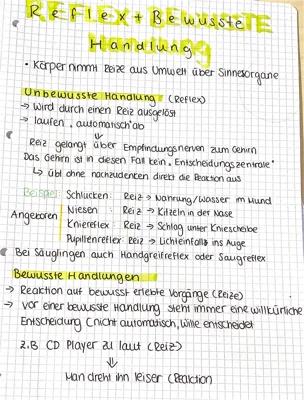 Reflex + Bewusste
Handlung
• Körper nimmt Reize aus Umwelt über Sinnesorgane
Unbewusste Handlung (Reflex)
→ Wird durch einen Reiz ausgelöst
→ laufen „automatisch" ab
⇓
Reiz gelangt über Empfindungsnerven zum Gehirn
Das Gehirn ist in diesen Fall kein „Entscheidungszentrale"
↳ übt ohne nachzudenken direkt die Reaktion aus
Beispiel: Schlucken: Reiz → Nahrung/Wasser im Mund
Angeboren Niesen: Reiz → Kitzeln in der Nase
Kniereflex: Reiz → Schlag unter Kniescheibe
Pupillenreflex: Reiz → Lichteinfall ins Auge
Bei Säuglingen auch Handgreifreflex oder Saugreflex
Bewusste Handlungen
→ Reaktion auf bewusst erlebte Vorgänge (Reize)
→ Vor einer bewusste Handlung steht immer eine willkürliche
Entscheidung (nicht automatisch, Wille entscheidet)
z.B CD Player zu laut (Reiz)
⇓
Man dreht ihn leiser (Reaktion)